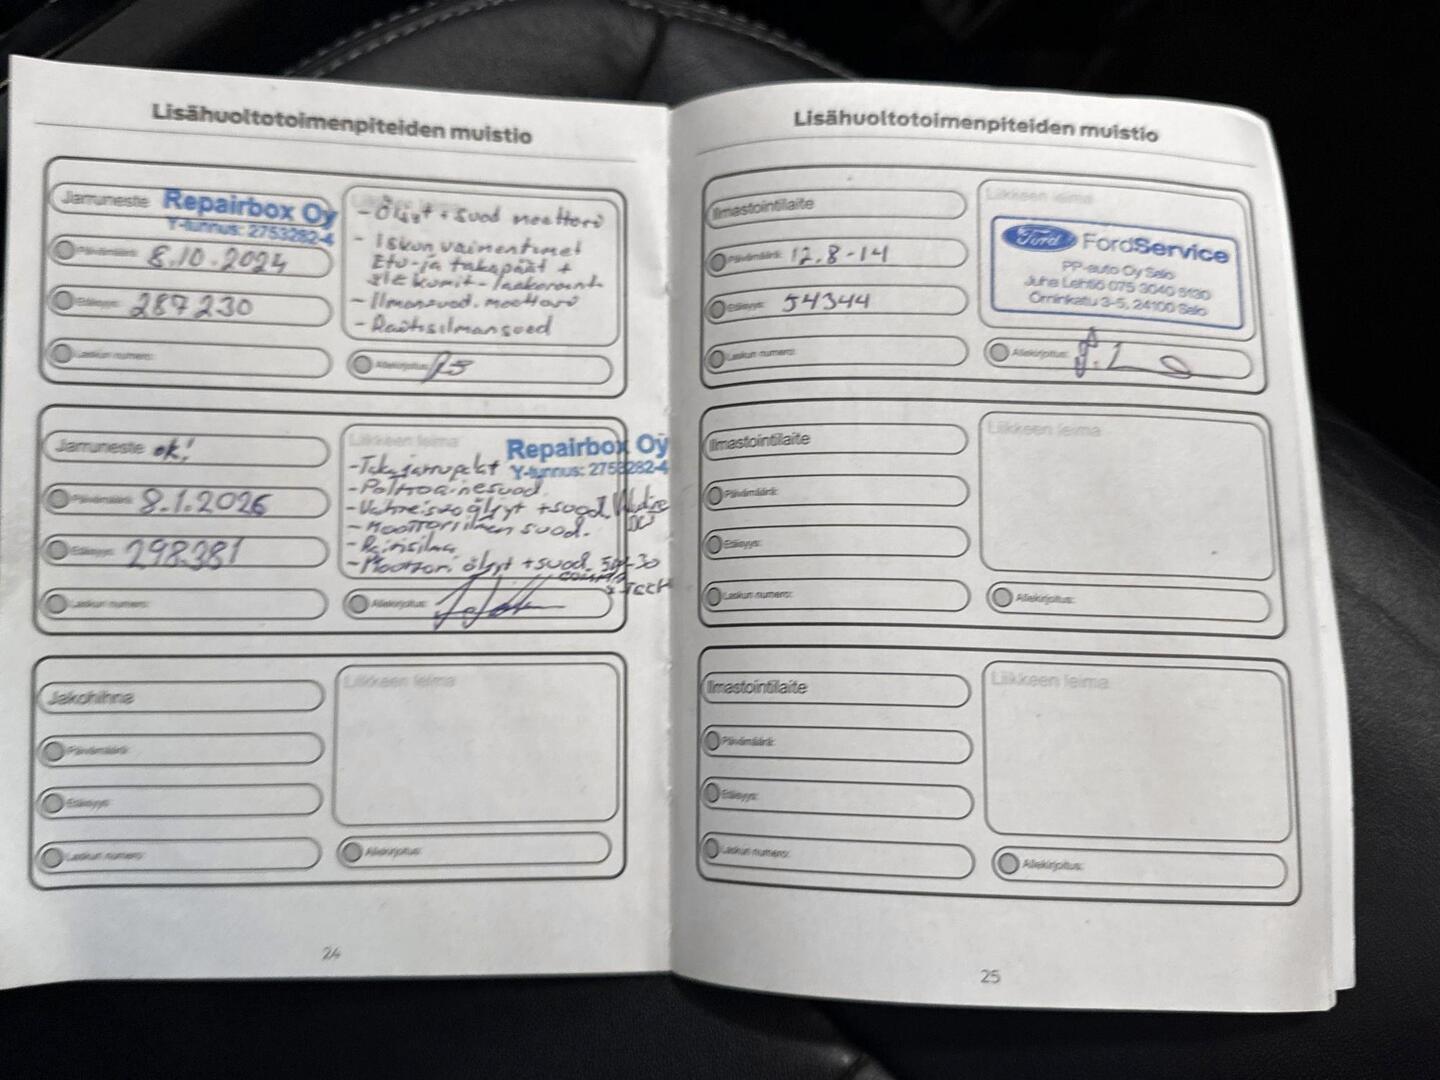 Lisähuoltotoimenpiteiden muistio
Jarruneste
Repairbox Oy
Y-tunnus: 2753282-4
Päivämäärä: 8.10.2024
Etäisyys: 287230
Laskun numero:
- Öljyt + suod moottori
- Iskunvaimentimet
Etu- ja takapäät +
- Ilmansuod. moottori
- Raitisilmansuod
Allekirjoitus:
Jarruneste ok!
Päivämäärä: 8.1.2026
Etäisyys: 298381
Laskun numero:
Liikkeen leima
Repairbox Oy
Y-tunnus: 2753282-4
- Takajarrupalat
- Polttoainesuod.
- Vaihteisto öljyt + suod.
- Moottoriilman suod.
- Raitisilma
- Moottori öljyt + suod. 5W-30
Allekirjoitus:
Jakohihna
Päivämäärä:
Etäisyys:
Laskun numero:
Liikkeen leima
Allekirjoitus:
24
Lisähuoltotoimenpiteiden muistio
Ilmastointilaite
Päivämäärä: 12.8-14
Etäisyys: 54344
Laskun numero:
Liikkeen leima
Ford FordService
PP-auto Oy Salo
Juha Lehtiö 075 3040 5130
Örninkatu 3-5, 24100 Salo
Allekirjoitus:
Ilmastointilaite
Päivämäärä:
Etäisyys:
Laskun numero:
Liikkeen leima
Allekirjoitus:
Ilmastointilaite
Päivämäärä:
Etäisyys:
Laskun numero:
Liikkeen leima
Allekirjoitus:
25